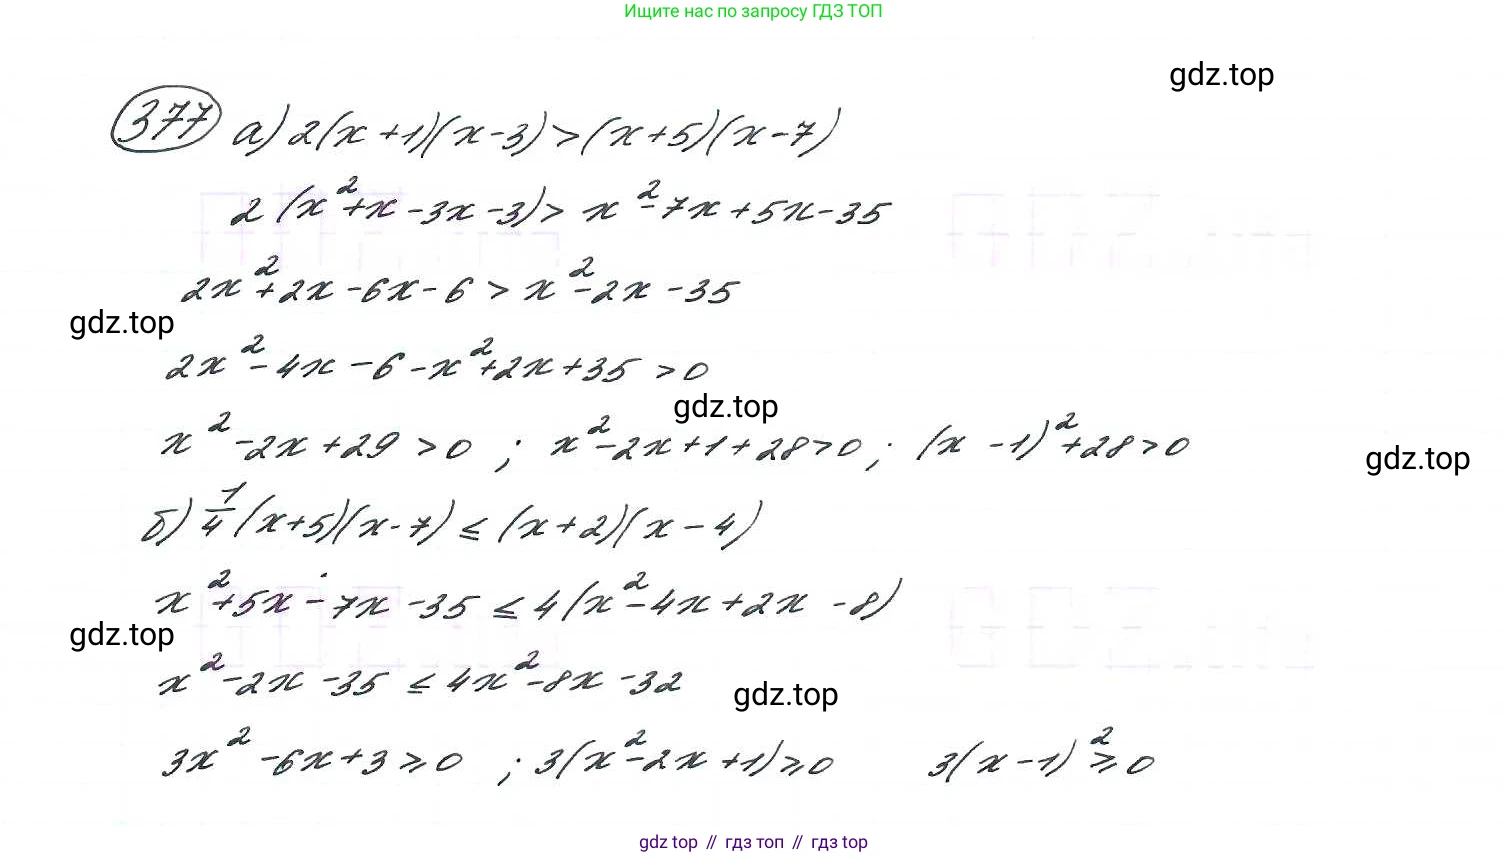 Ищите нас по запросу ГДЗ ТОП
gdz.top
377 а) 2(x+1)(x-3)>(x+5)(x-7)
2(x²+x-3x-3)> x²-7x+5x-35
2x²+2x-6x-6 > x²-2x-35
gdz.top
2x²-4x-6-x²+2x+35 >0
gdz.top
x²-2x+29>0 ; x²-2x+1+28>0 ; (x-1)²+28>0
gdz.top
б) 1/4 (x+5)(x-7) ≤ (x+2)(x-4)
x²+5x-7x-35 ≤ 4(x²-4x+2x-8)
gdz.top
x²-2x-35 ≤ 4x²-8x-32
gdz.top
3x²-6x+3≥0 ; 3(x²-2x+1)≥0 3(x-1)²≥0
gdz top // гдз топ // gdz top